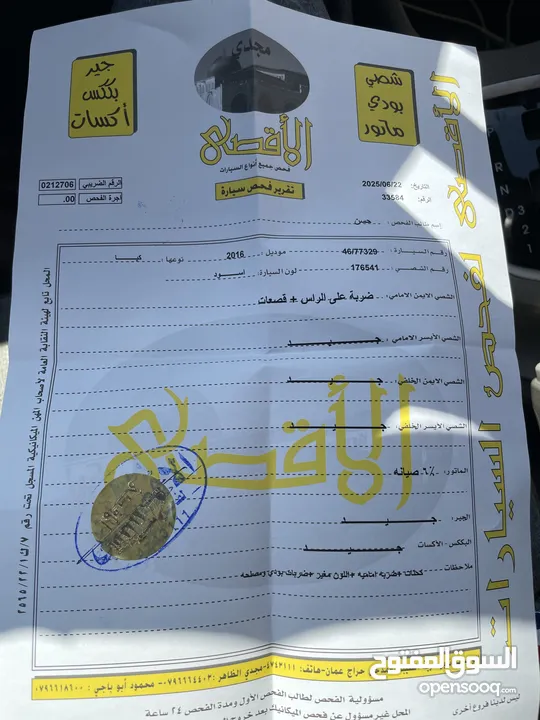 مجدي
شصي
بودي
ماتور
جير
بكس
أكسات
الأقصى
فحص جميع أنواع السيارات
تقرير فحص سيارة
التاريخ: 2025/06/22
الرقم: 33584
الرقم الضريبي 0212706
أجرة الفحص .00
إسم طالب الفحص: حسن
رقم السيارة: 46/77329 موديل: 2016 نوعها: كيا
رقم الشصي: 176541 لون السيارة: اسود
الشصي الايمن الامامي: ضربة على الراس + قصعات
الشصي الأيسر الامامي: جيد
الشصي الايمن الخلفي: جيد
الشصي الايسر الخلفي: جيد
الماتور: ٦٠٪ صيانه
الجير: جيد
البكس، الأكسات: جيد
ملاحظات: كحتات +ضربه اماميه +اللون مغير +ضربات بودي ومصلحه
الأقصى
الأقصى لفحص السيارات
المحل تابع لهيئة النقابة العامة لأصحاب المهن الميكانيكية المسجل تحت رقم
حراج عمان - هاتف: ٤٧٤٢١١١ - مجدي الظاهر: ٠٧٩٦٦٦٤٤٠٢ - محمود أبو باجي: ٠٧٩٦٦١٨٦٠٠
مسؤولية الفحص لطالب الفحص الأول ومدة الفحص ٢٤ ساعة
المحل غير مسؤول عن فحص الميكانيك بعد خروج
ليس لدينا فروع أخرى
السوق المفتوح
opensooq.com